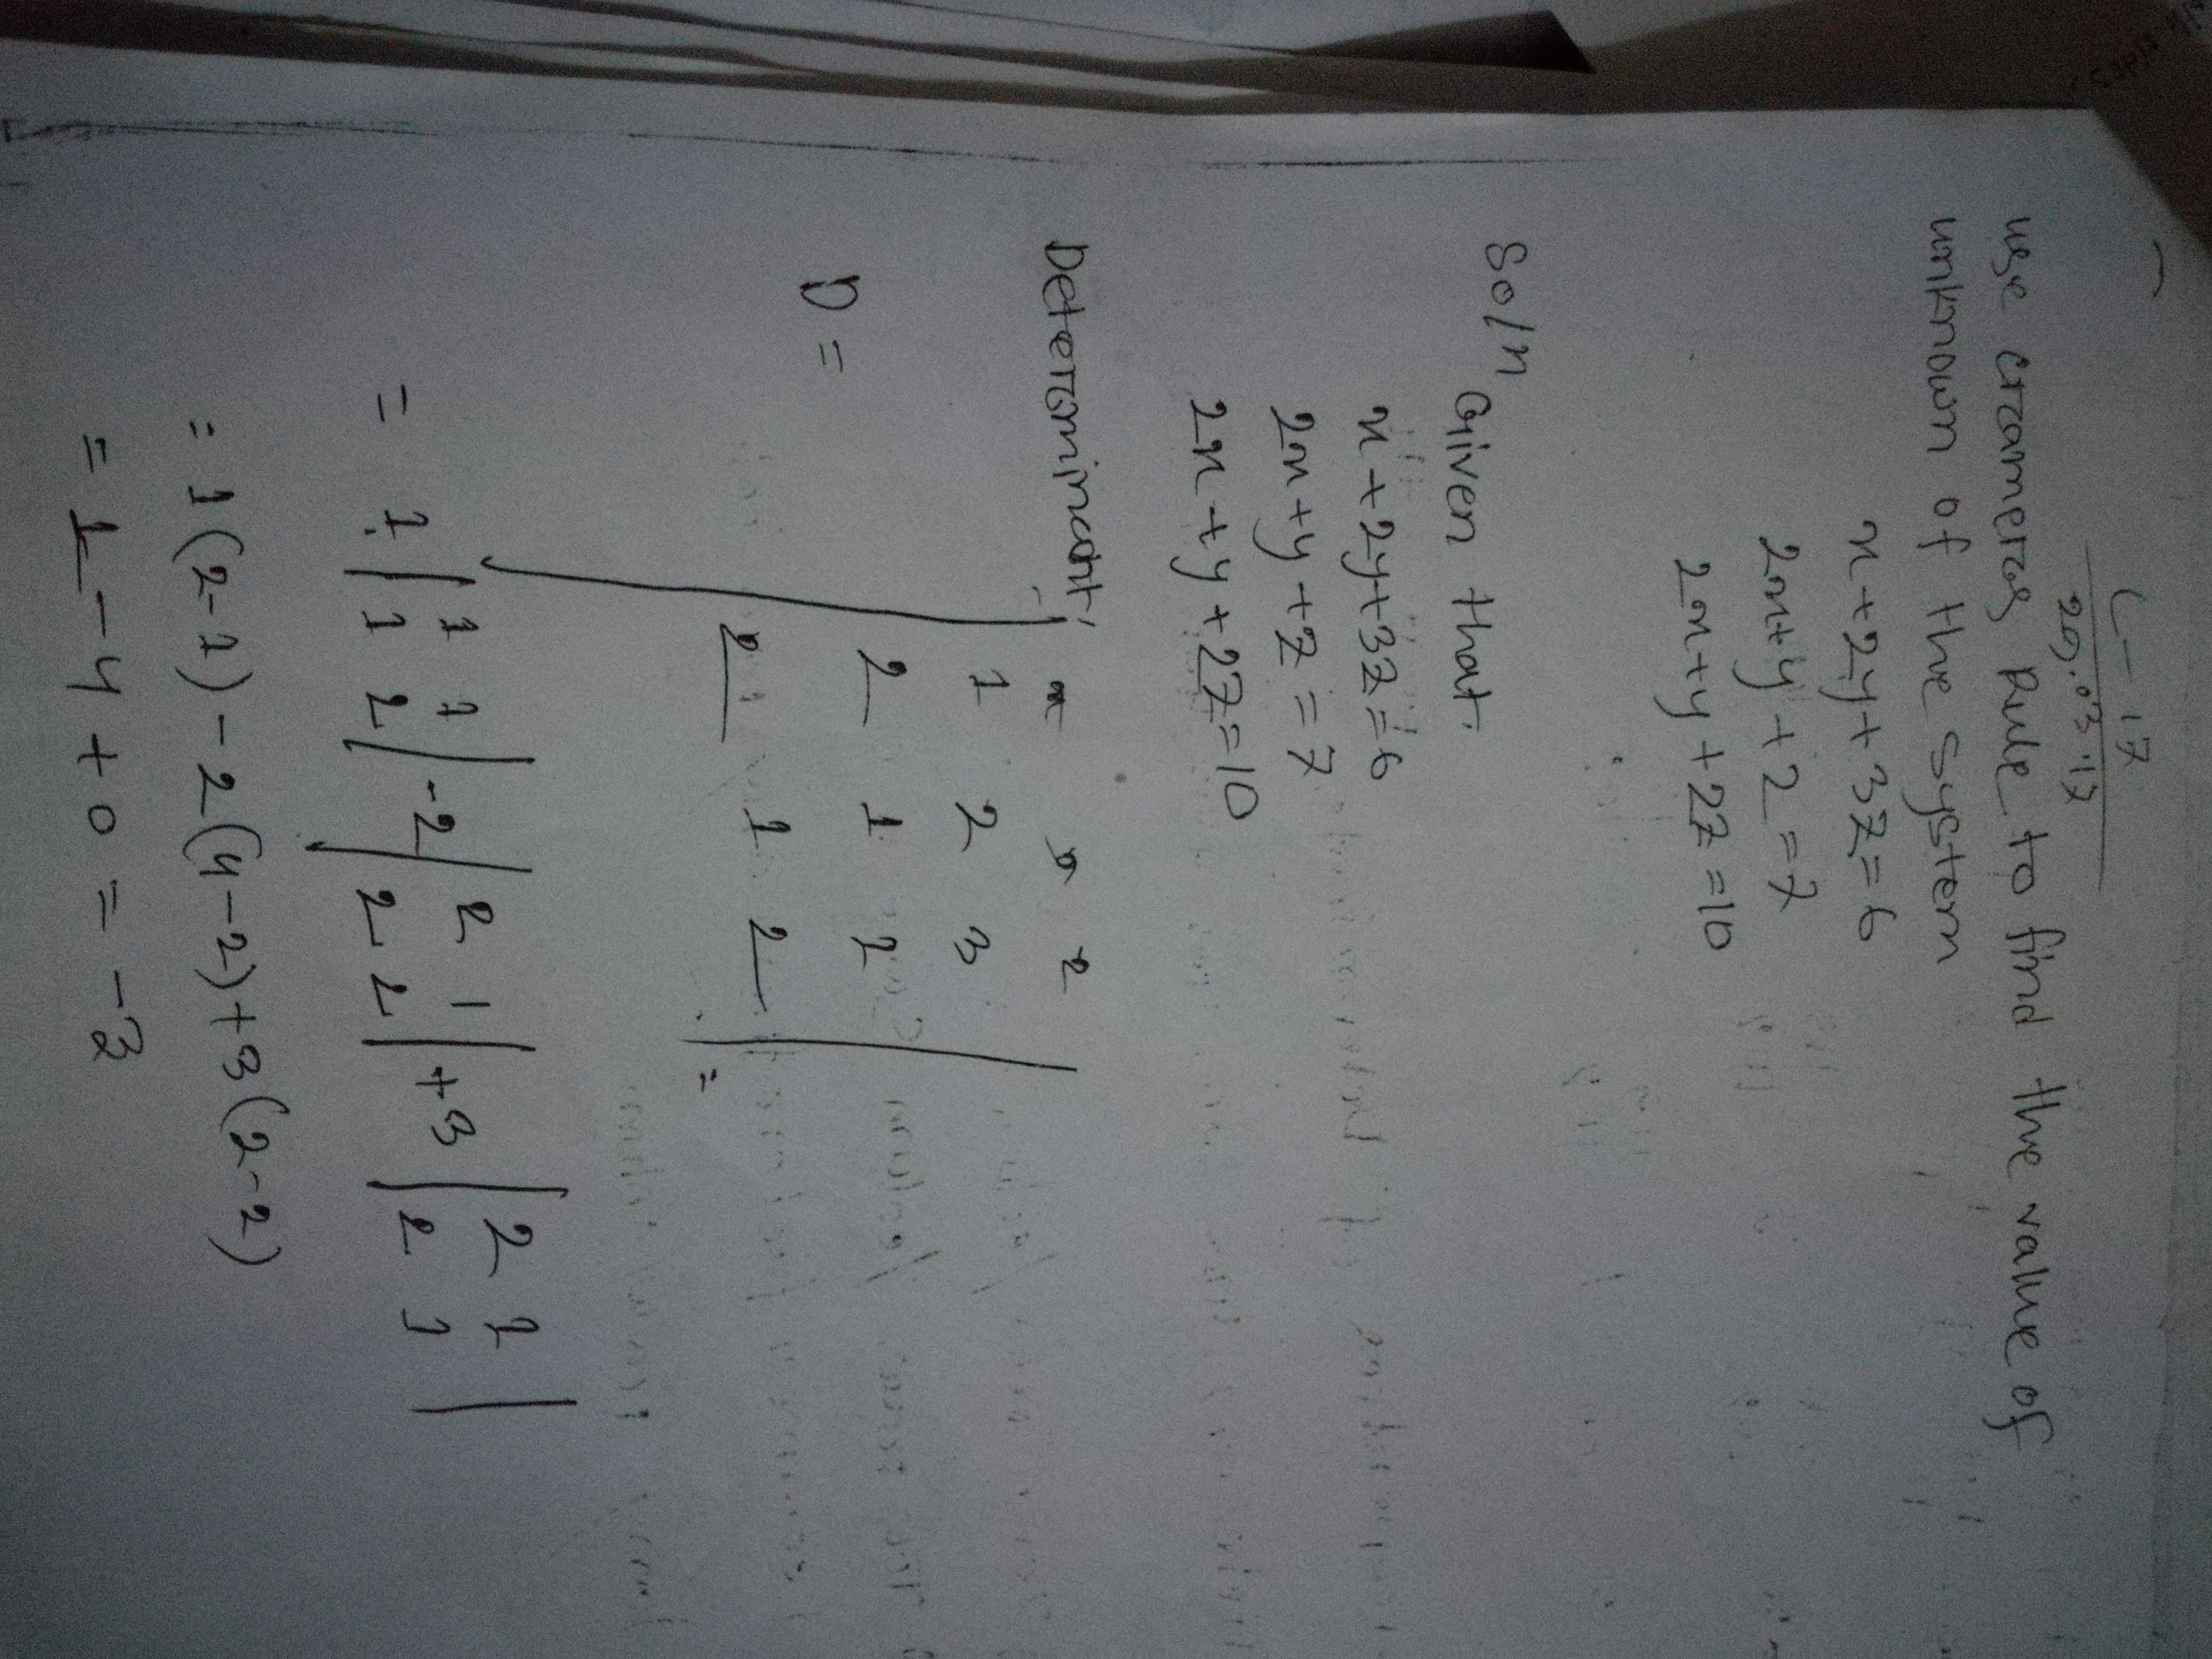 C-17
20.03.17
use cramers Rule to find the value of
unknown of the system
x+2y+3z=6
2x+y+2=7
2x+y+2z=10
Soln
Given that.
x+2y+3z=6
2x+y+z=7
2x+y+2z=10
Determinant,
x y z
1 2 3
D = 2 1 2
2 1 2 =
= 1 | 1 1 | -2 | 2 1 | +3 | 2 1 |
1 2 2 2 2 1
= 1(2-1)-2(4-2)+3(2-2)
= 1-4+0=-3